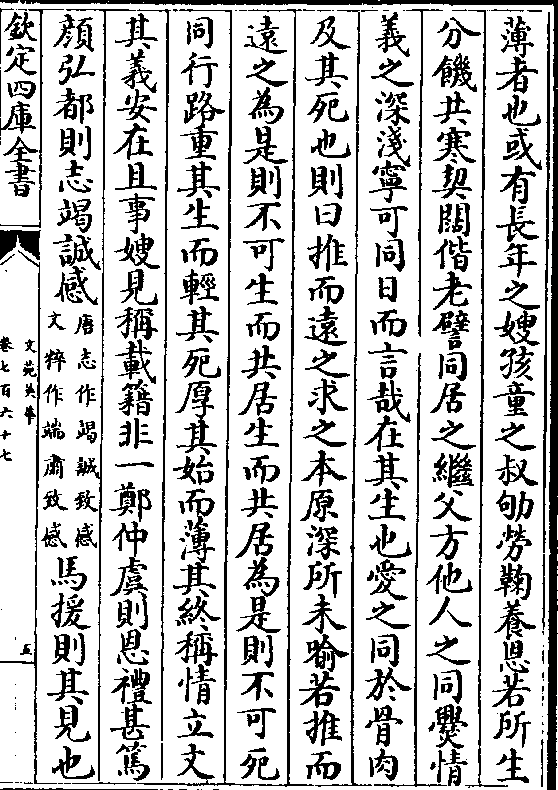 薄者也或有長年之嫂孩童之叔劬勞鞠養恩若所生
分饑共寒契闊偕老譬同居之繼父方他人之同爨情
義之深淺寧可同日而言哉在其生也愛之同於骨肉
及其死也則曰推而遠之求之本原深所未喻若推而
遠之為是則不可生而共居生而共居為是則不可死
同行路重其生而輕其死厚其始而薄其終稱情立文
其義安在且事嫂見稱載籍非一鄭仲虞則恩禮甚篤
顔弘都則志竭誠感唐志作竭誠致感文粹作端肅致感馬援則其見也
欽定四庫全書
文苑英華
卷七百六十七
五